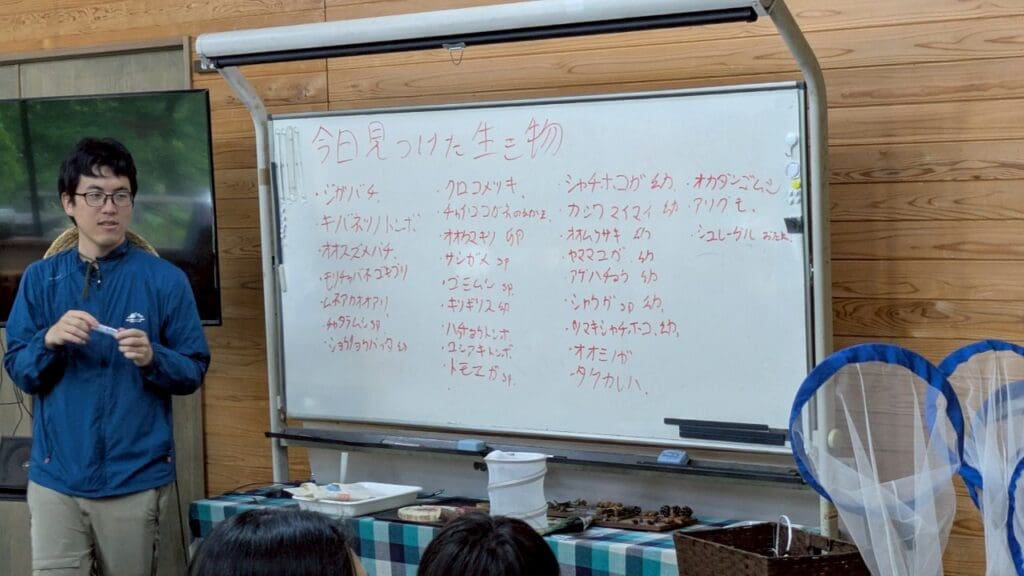 今日見つけた生き物
・ジガバチ
・キバネツノトンボ
・オオスズメバチ
・モリチャバネゴキブリ
・ムネアカオオアリ
・チャタテムシ sp
・ショウリョウバッタ 幼
・クロコメツキ
・オオカマキリ
・サシガメ sp
・ゴミムシ sp
・キリギリス 幼
・ハラビロトンボ
・コシアキトンボ
・トモエガ sp
・シャチホコガ 幼
・カシワマイマイ 幼
・オオムラサキ 幼
・ヤママユガ 幼
・アゲハチョウ 幼
・シャクガ sp 幼
・ツマキシャチホコ 幼
・オオミノガ
・タケカレハ
・オカダンゴムシ
・アリグモ
・シュレーゲル